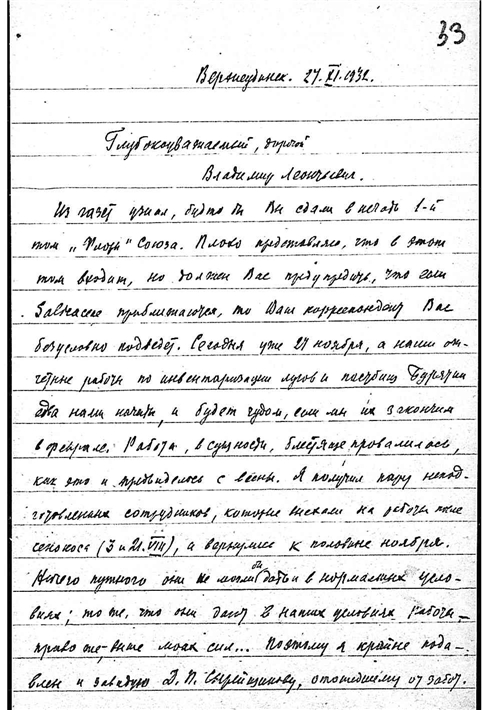 33
Верхнеудинск. 27.XI.1932.
Глубокоуважаемый, дорогой
Владимир Леонтьевич.
Из газет узнал, будто бы Вы сдали в печать 1-й
том „Флоры" Союза. Плохо представляю, что в этот
том входит, но должен Вас предупредить, что если
Salicaceae приближаются, то Ваш корреспондент Вас
безусловно подведёт. Сегодня уже 27 ноября, а наши от-
четные работы по инвентаризации лугов и пастбищ Бурятии
едва нами начаты, и будет чудом, если мы их закончим
в феврале. Работа, в сущности, блестяще провалилась,
как это и предвиделось с весны. Я получил пару непод-
готовленных сотрудников, которые выехали на работы после
сенокоса (3 и 21.VIII), и вернулись к половине ноября.
Ничего путного они не могли бы дать и в нормальных усло-
виях; то же, что они дают в наших условиях работы –
право же, выше моих сил... Поэтому я крайне пода-
влен и завидую Д. П. Сырейщикову, отошедшему от забот.